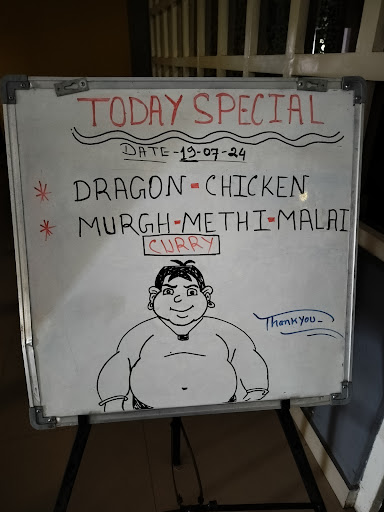 TODAY SPECIAL
DATE-19-07-24
* DRAGON-CHICKEN
* MURGH-METHI-MALAI
CURRY
Thank you_